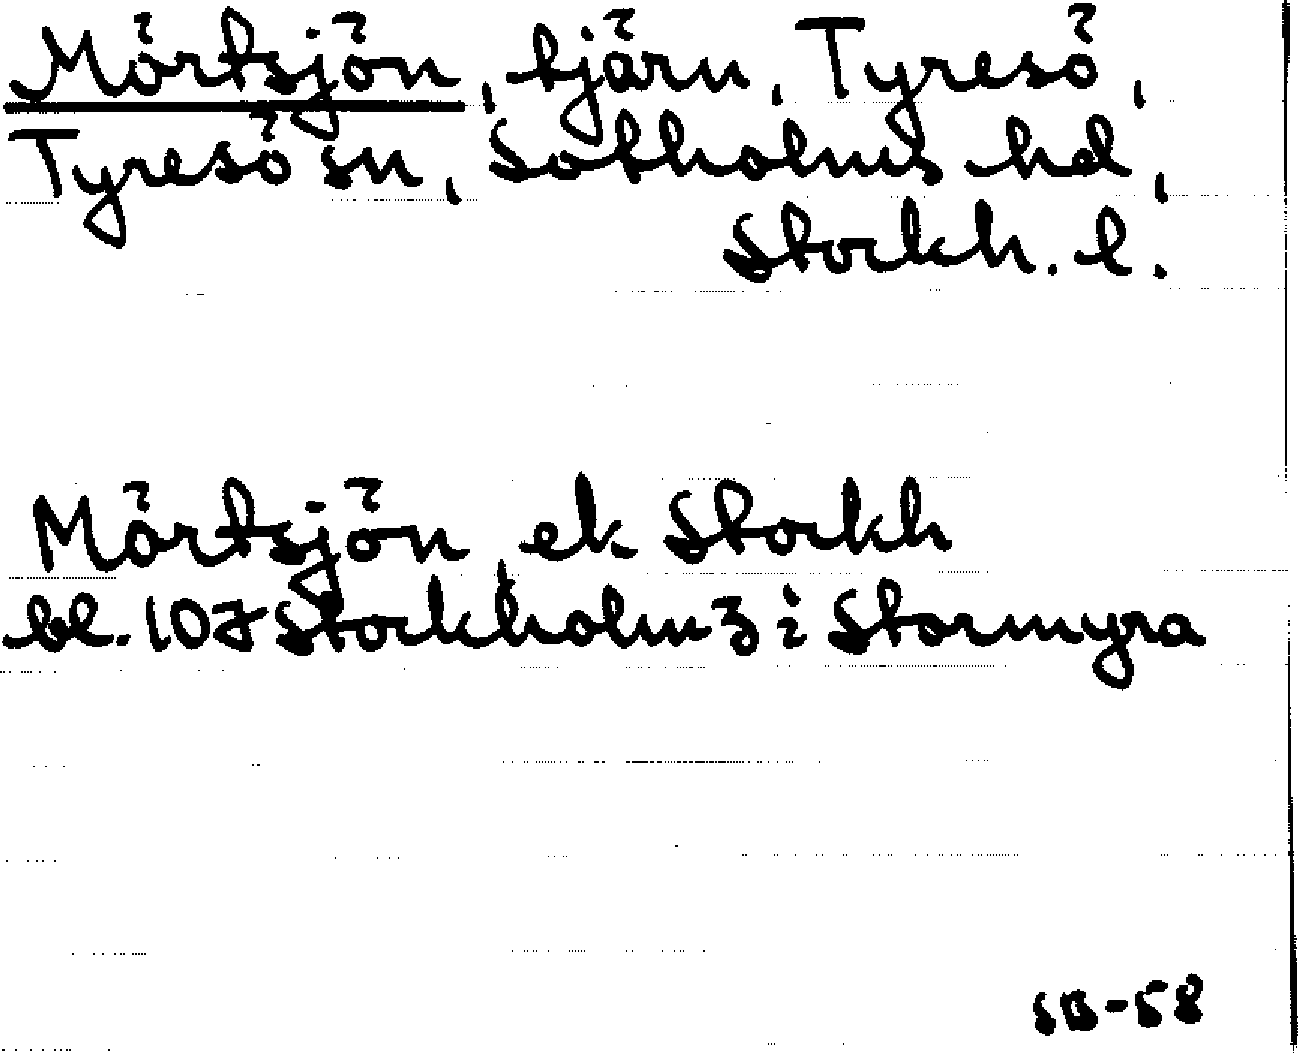 Mörtsjön, tjärn, Tyresö,
Tyresö sn, Sotholms hd,
Stockh. l.
Mörtsjön, ek Stockh
bl. 107 Stockholm 3 i Stormyra
SB-58